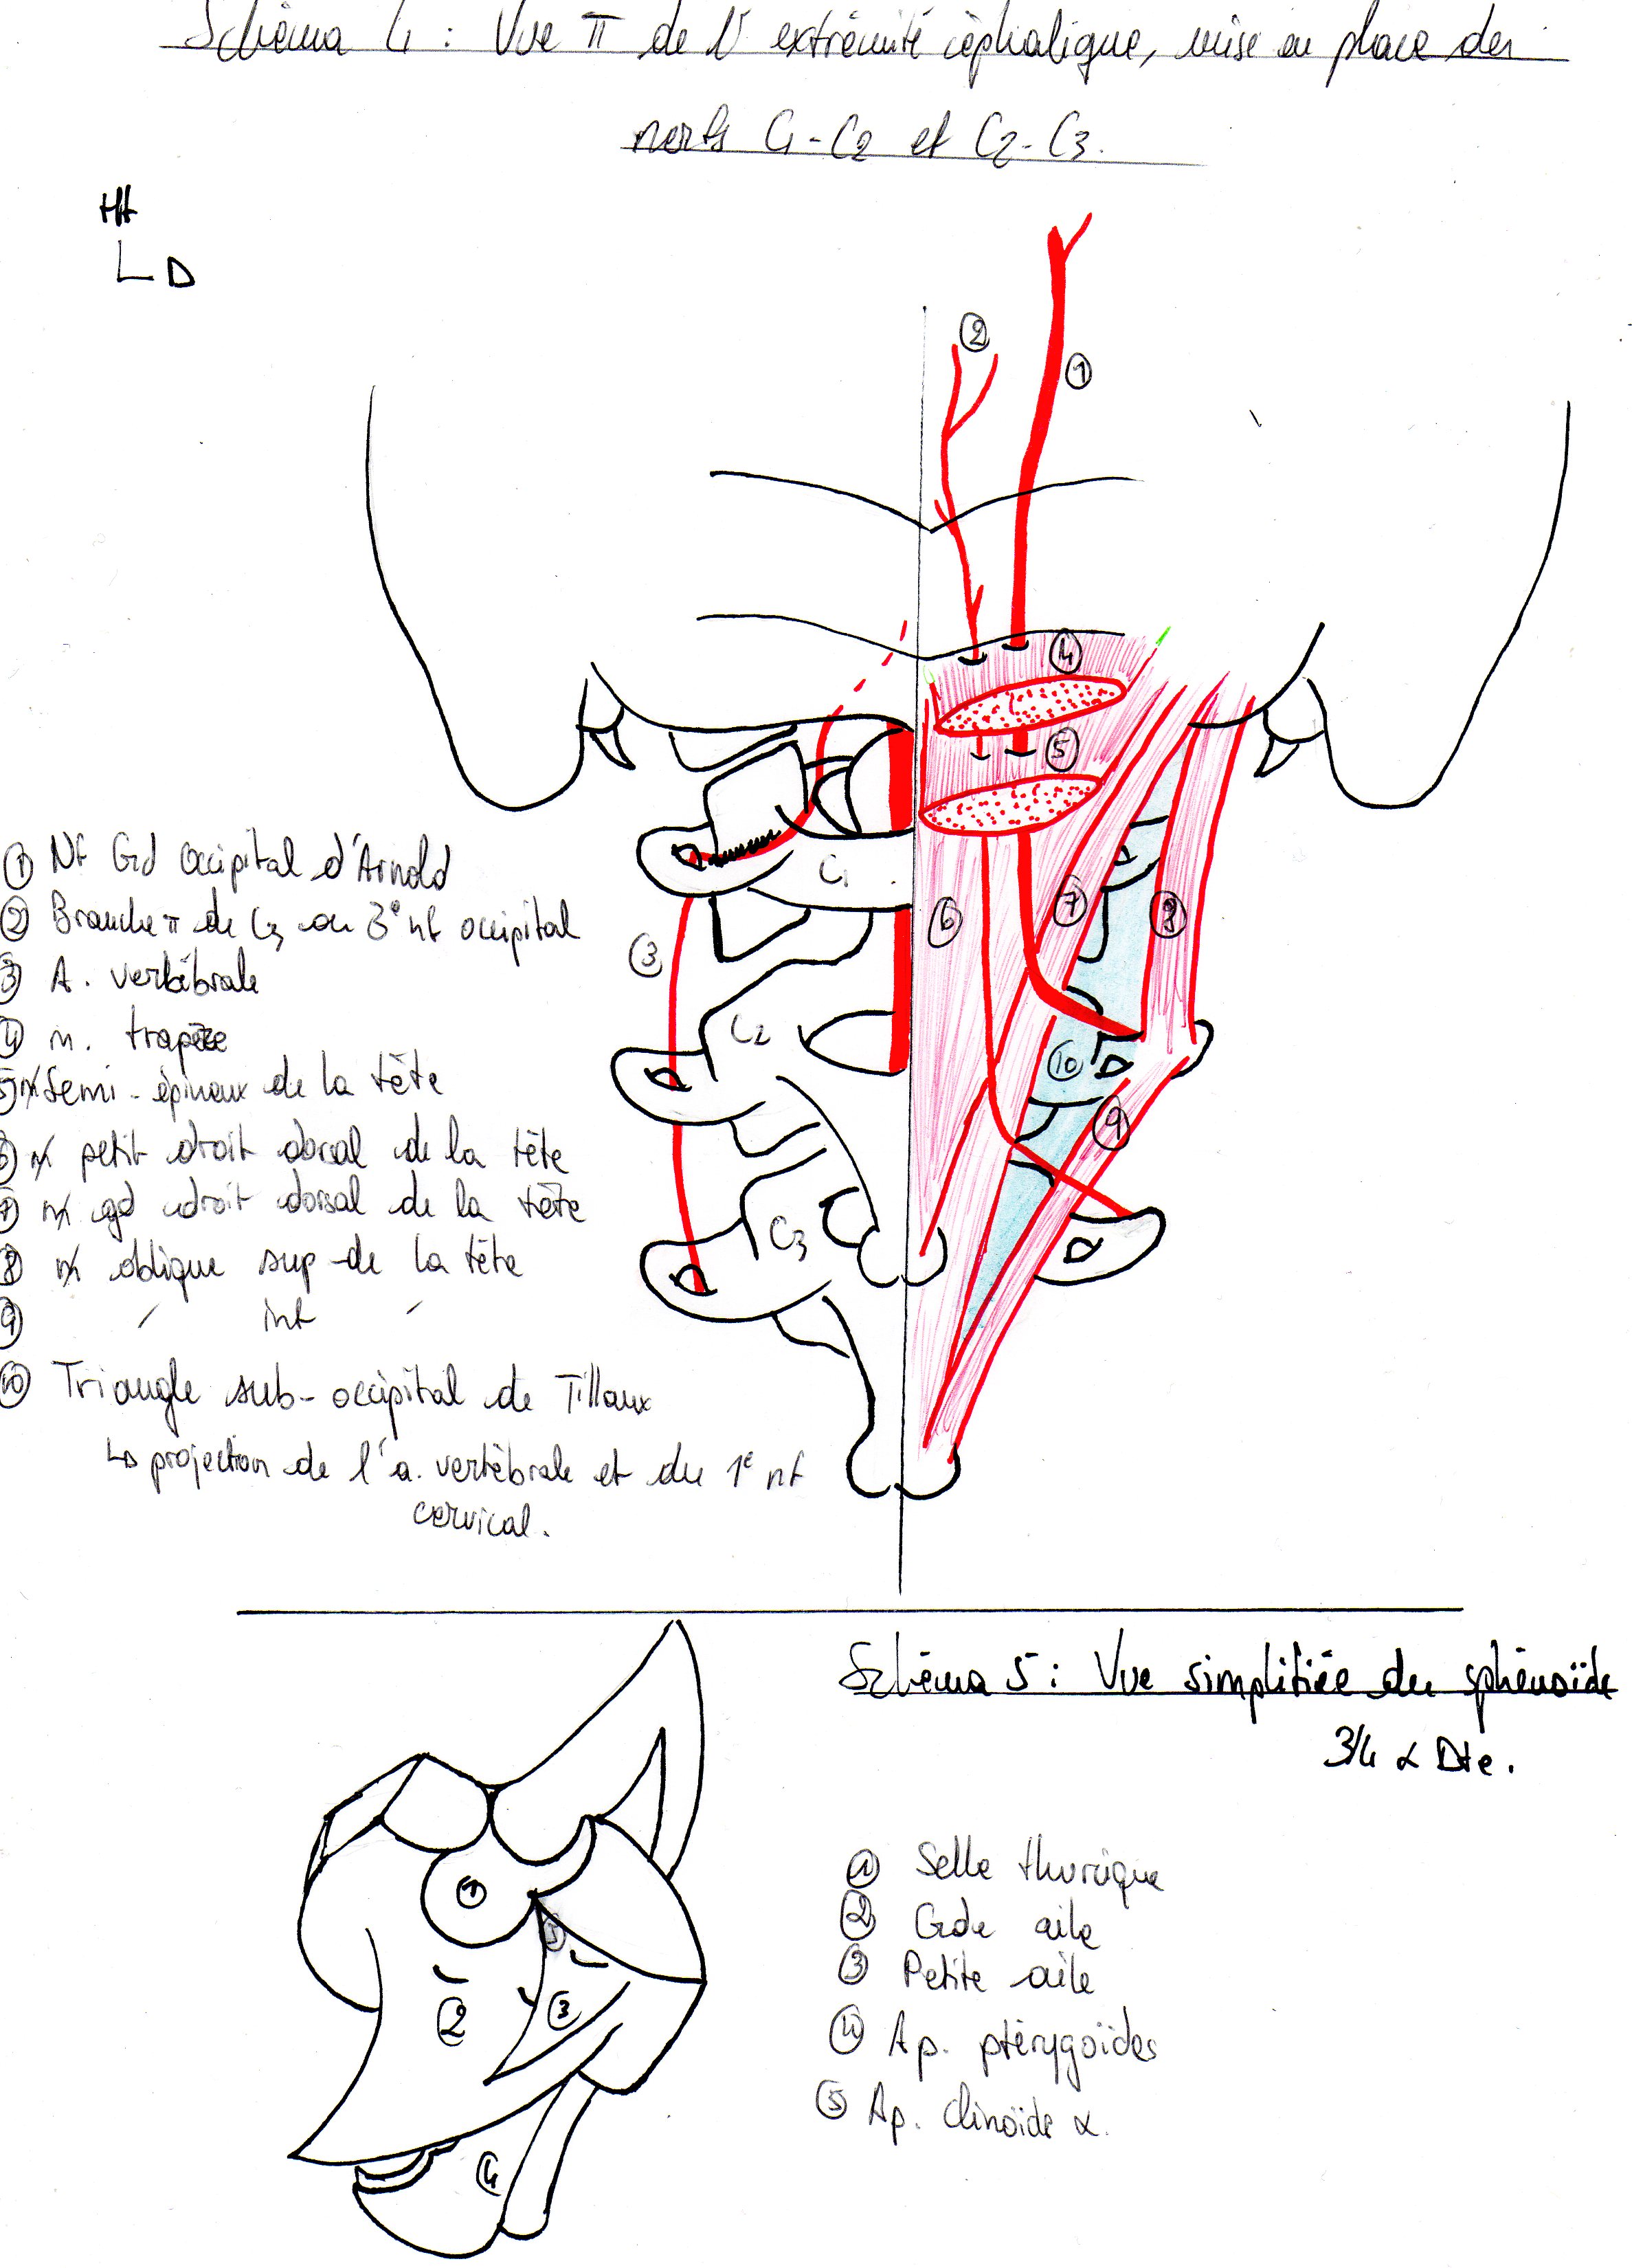 Schéma 4 : Vue π de l' extrémité céphalique, mise en place des
nerfs C1-C2 et C2-C3.
Ht
D
2
1
4
5
C1
6
7
8
3
C2
10
9
C3
1 Nf Gd Occipital d'Arnold
2 Branche π de C3 ou 3° nf occipital
3 A. vertébrale
4 m. trapèze
5 m semi-épineux de la tête
6 m petit droit dorsal de la tête
7 m gd droit dorsal de la tête
8 m oblique sup de la tête
9 - inf -
10 Triangle sub-occipital de Tillaux
↳ projection de l'a. vertébrale et du 1e nf
cervical.
Schéma 5 : Vue simplifiée du sphénoïde
3/4 α Dte.
1
5
2
3
4
1 Selle thurcique
2 Gde aile
3 Petite aile
4 Ap. ptérygoïdes
5 Ap. clinoïde α.